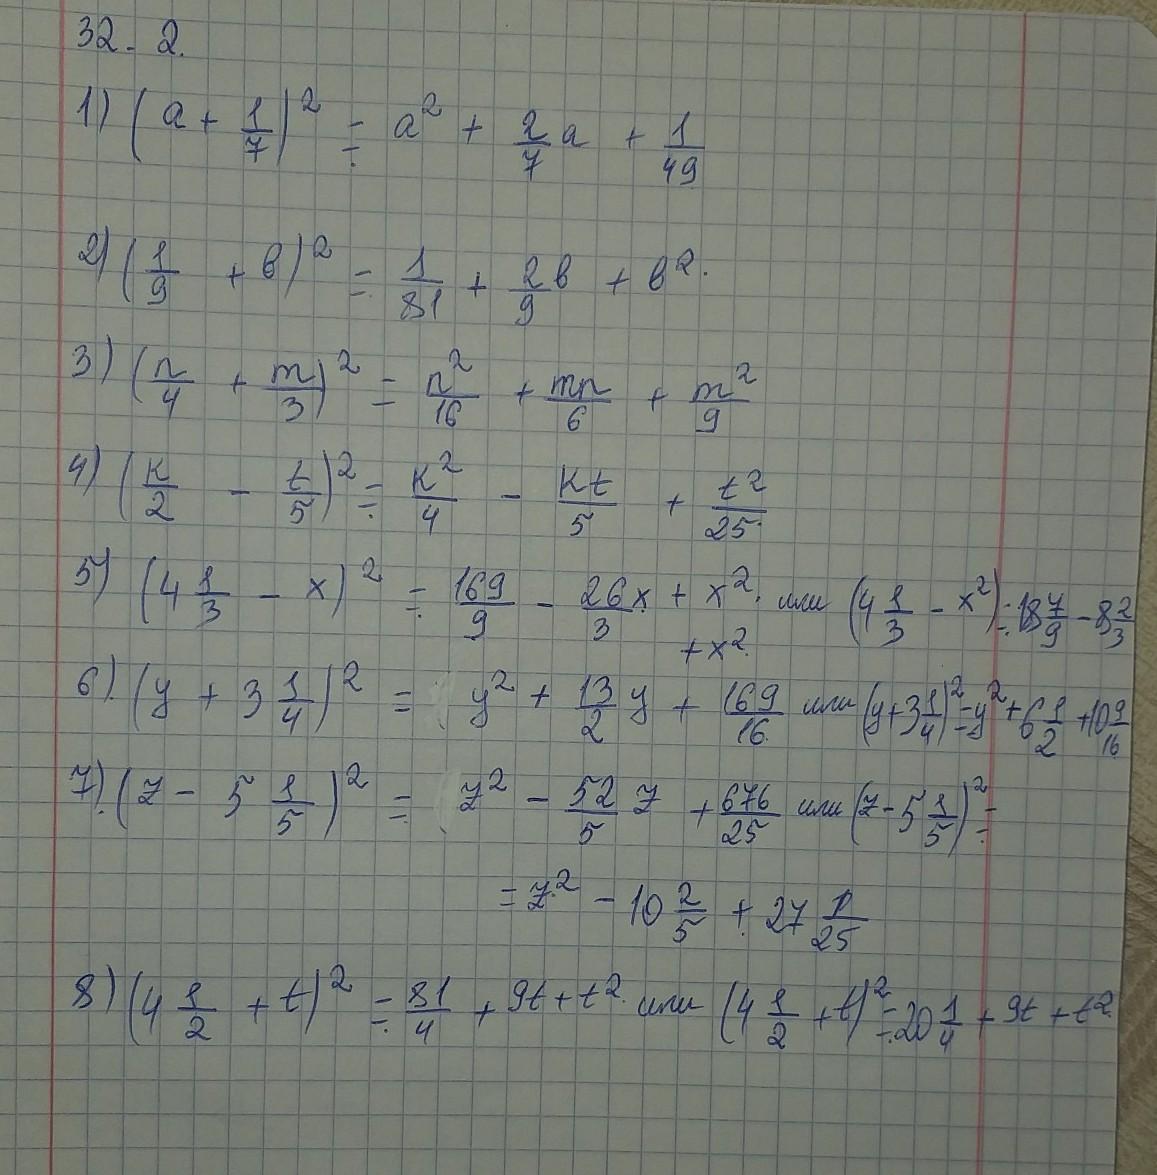 32 - 2.
1) (a + 1/7)² = a² + 2/7 a + 1/49
2) (1/9 + b)² = 1/81 + 2/9 b + b².
3) (n/4 + m/3)² = n²/16 + mn/6 + m²/9
4) (k/2 - t/5)² = k²/4 - kt/5 + t²/25
5) (4 1/3 - x)² = 169/9 - 26/3 x + x². или (4 1/3 - x²) = 18 7/9 - 8 2/3
+ x².
6) (y + 3 1/4)² = y² + 13/2 y + 169/16 или (y + 3 1/4)² = y² + 6 1/2 + 10 9/16
7) (z - 5 1/5)² = z² - 52/5 z + 676/25 или (z - 5 1/5)² =
= z² - 10 2/5 + 27 1/25
8) (4 1/2 + t)² = 81/4 + 9t + t². или (4 1/2 + t)² = 20 1/4 + 9t + t².